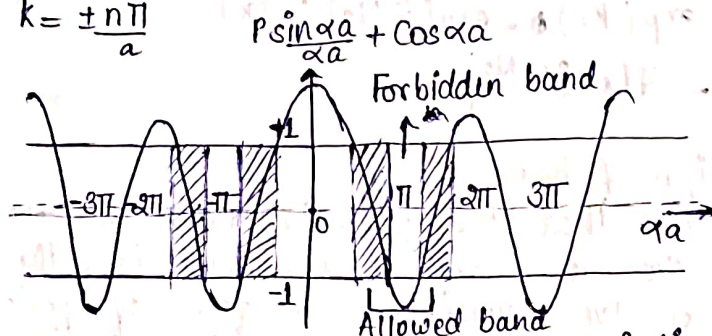 K = ± nπ/a
P sinαa/αa + Cosαa
Forbidden band
+1
-3π -2π -π 0 π 2π 3π
αa
-1
Allowed band